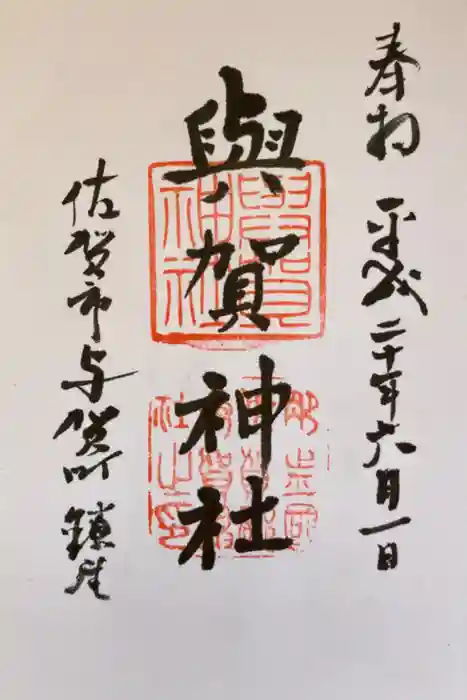 奉拝
平成二十年六月一日
與賀神社
佐賀市与賀町鎮座
與賀
神社